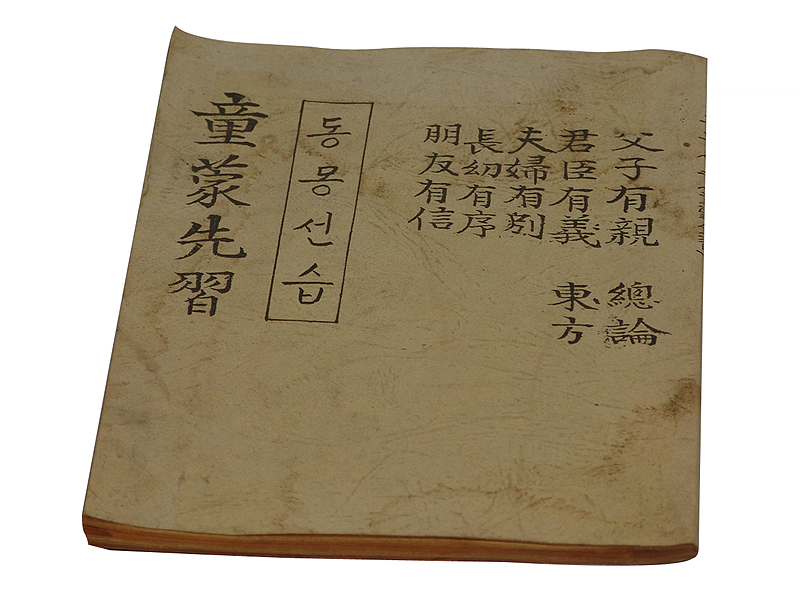 父子有親 總論
君臣有義 東方
夫婦有別
長幼有序
朋友有信
동몽선습
童蒙先習